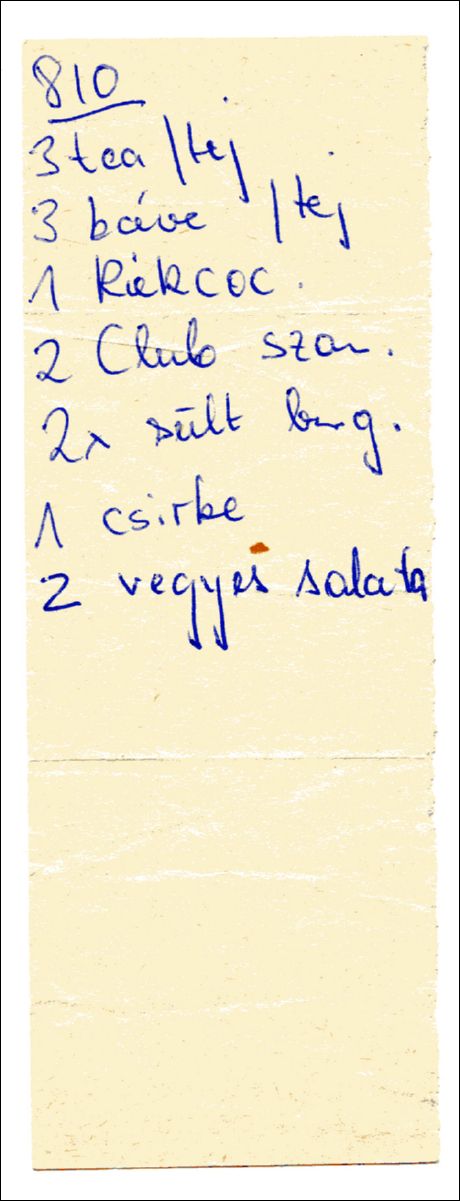 810
3 tea /tej
3 káve /tej
1 Rákcoc.
2 Club szan.
2x sült burg.
1 csirke
2 vegyes salata